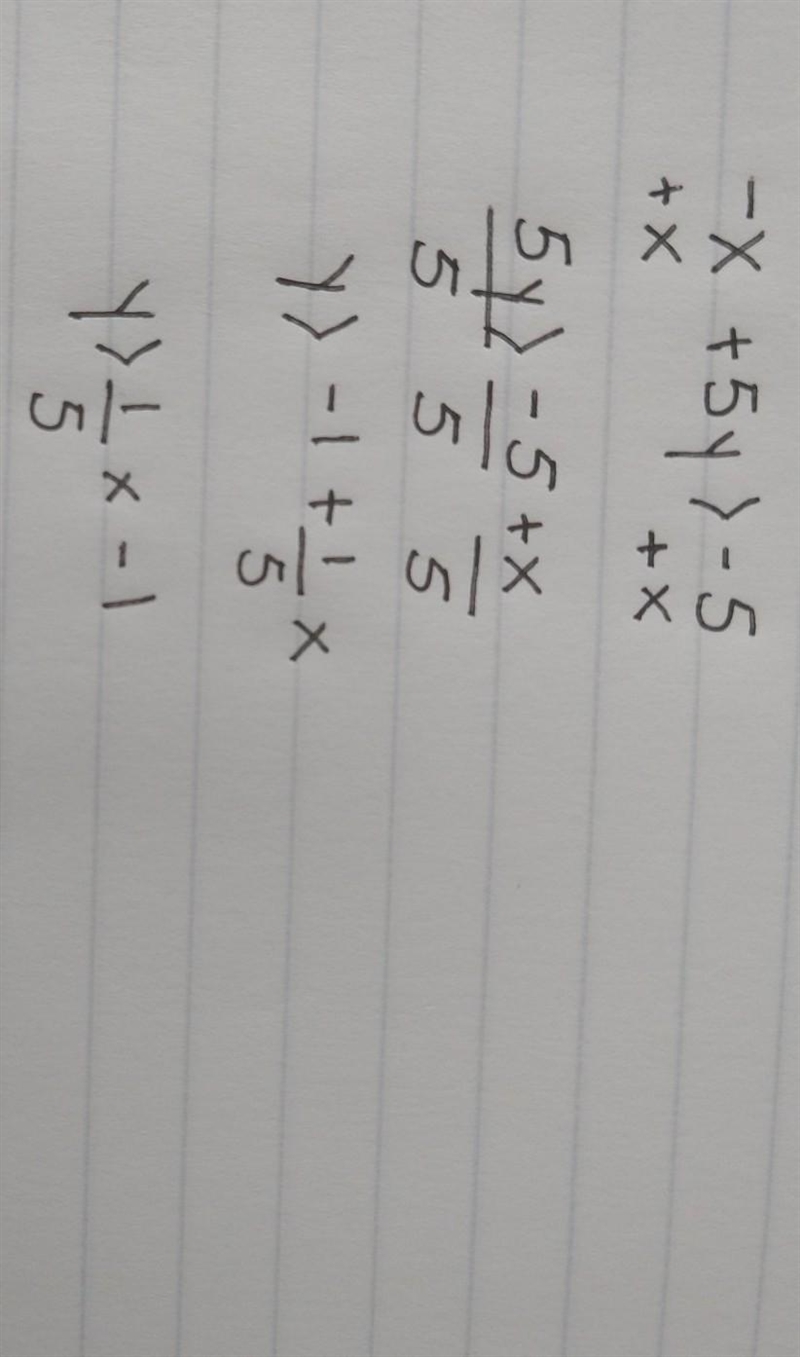 -x +5y > -5
+x +x
5y > -5 +x
5 5 5
y > -1 + 1/5 x
y > 1/5 x -1